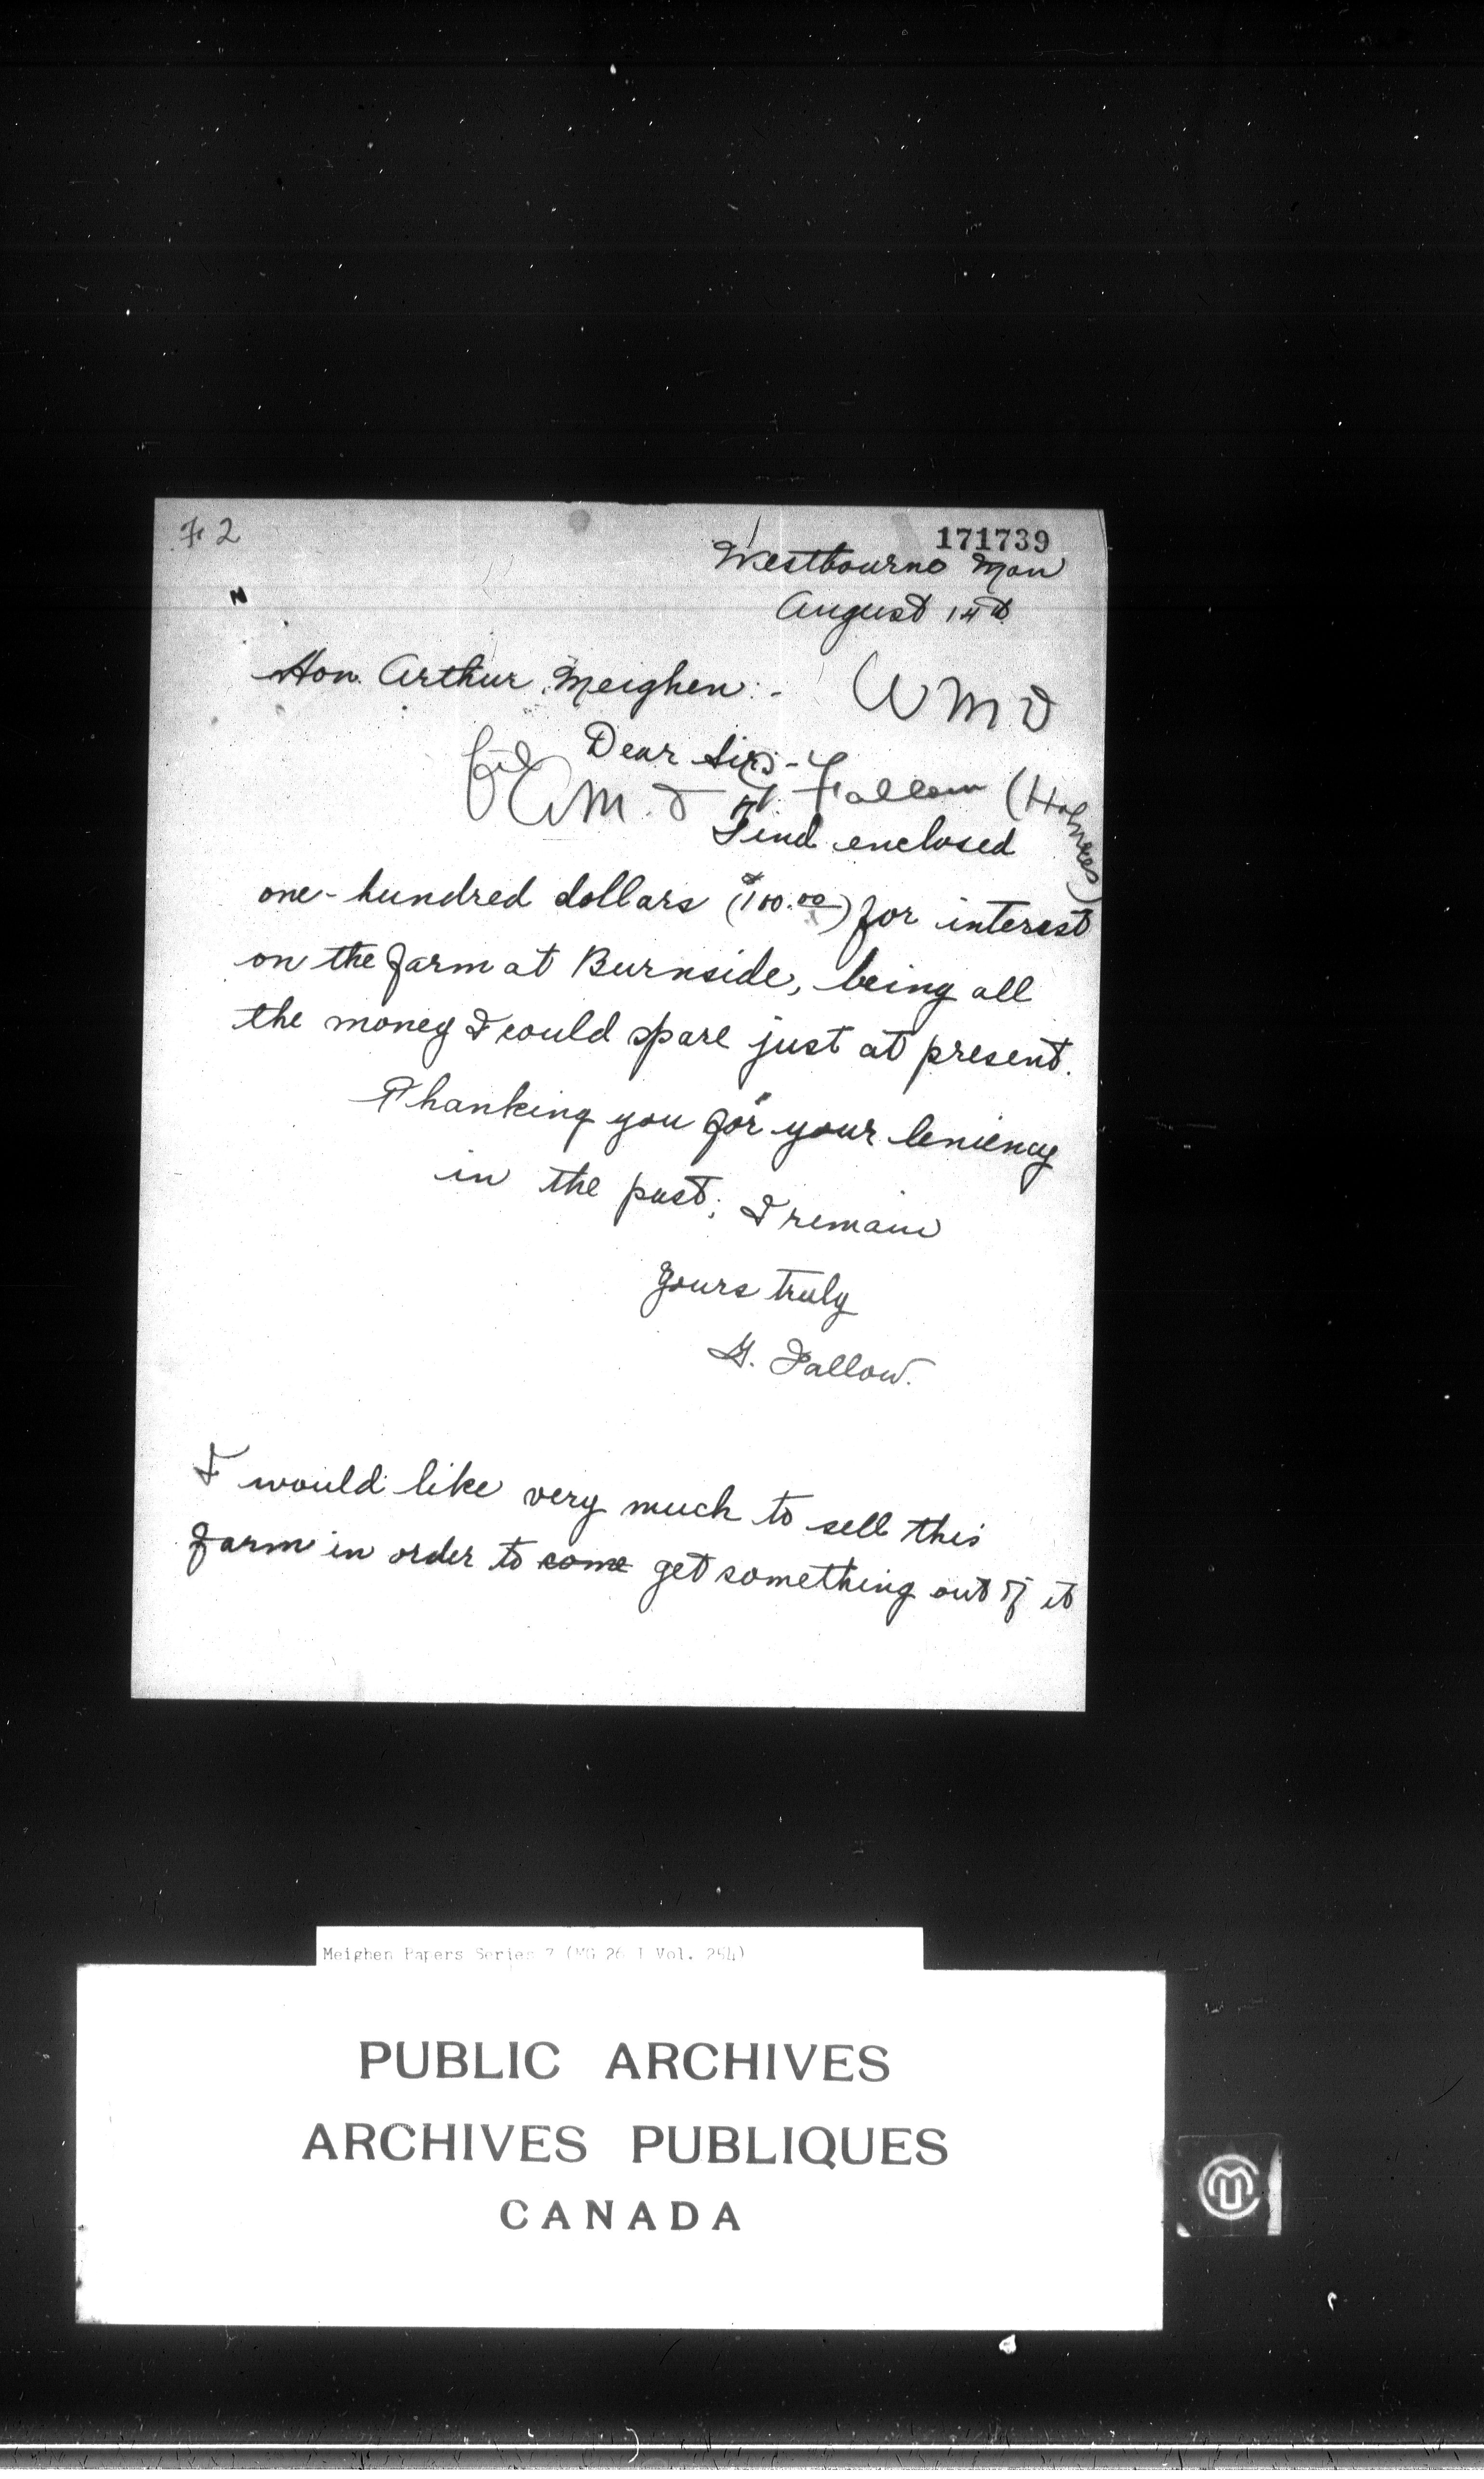 F 2
171739
Westbourne Man
August 14th
Hon. Arthur Meighen:-
WMD
Dear Sir:-
file
Fallow (Holmes)
Find enclosed
one-hundred dollars ($100.00) for interest
on the farm at Burnside, being all
the money I could spare just at present.
Thanking you for your leniency
in the past; I remain
Yours truly
G. Fallow.
I would like very much to sell this
farm in order to come get something out of it
Meighen Papers Series 7 (MG 26 I Vol. 254)
PUBLIC ARCHIVES
ARCHIVES PUBLIQUES
CANADA